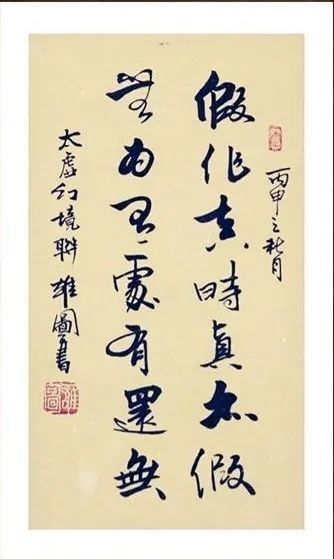 丙申之秋月
假作真時真亦假
無为有處有還無
太虛幻境聯 雄圖書